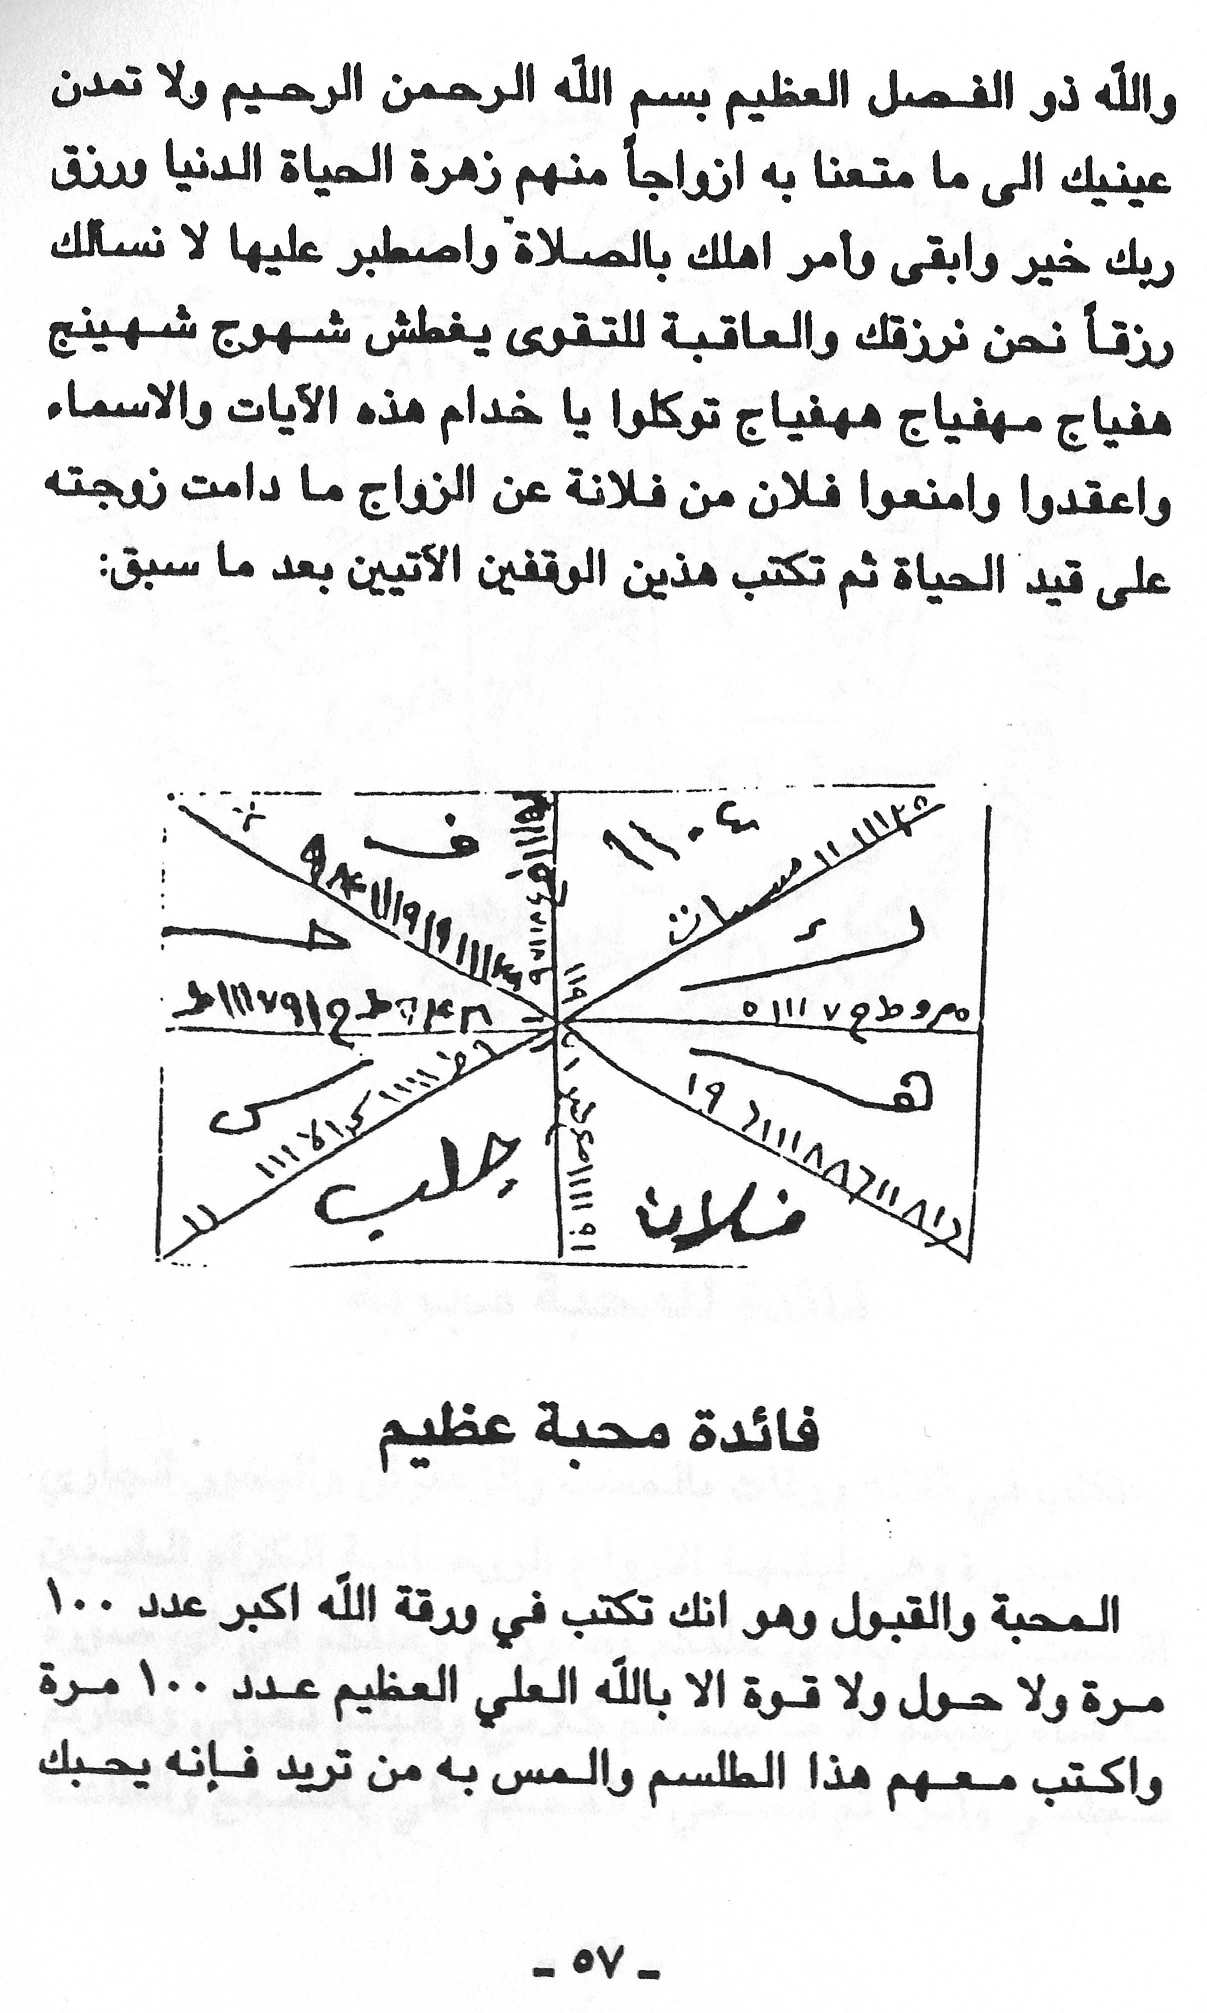 والله ذو الفصل العظيم بسم الله الرحمن الرحيم ولا تمدن
عينيك الى ما متعنا به ازواجاً منهم زهرة الحياة الدنيا ورزق
ربك خير وابقى وأمر اهلك بالصلاة واصطبر عليها لا نسألك
رزقاً نحن نرزقك والعاقبة للتقوى يغطش شهوج شهينج
هفياج مهفياج ههفياج توكلوا يا خدام هذه الآيات والاسماء
واعقدوا وامنعوا فلان من فلانة عن الزواج ما دامت زوجته
على قيد الحياة ثم تكتب هذين الوقفين الآتيين بعد ما سبق:
ف
حـ
هـ
س
جلب
فلان
فائدة محبة عظيم
المحبة والقبول وهو انك تكتب في ورقة الله اكبر عدد ١٠٠
مرة ولا حول ولا قوة الا بالله العلي العظيم عدد ١٠٠ مرة
واكتب معهم هذا الطلسم والمس به من تريد فإنه يحبك
ـ ٥٧ ـ